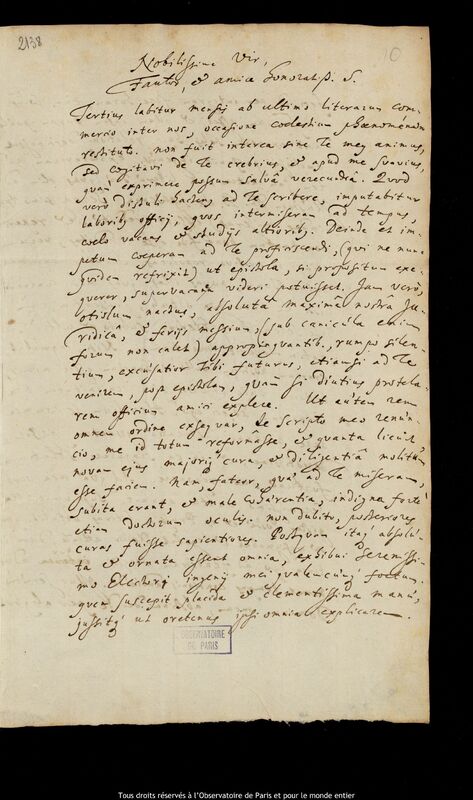 2138
10
Nobilissime Vir,
Fautor, et amice honoratiss. S.
Tertius labitur mensis ab ultimo literarum com-
mercio inter nos, occasione coelestium phoenoménωn
restituto. non fuit interea sine Te meus animus,
sed cogitavi de Te crebrius, et apud me suavius,
quam exprimere possum salvâ verecundiâ. Quod
vero distuli hactenus ad Te scribere, imputabitur
laboribus officij, quos intermiseram ad tempus,
coelo vacans et studijs altioribus. Deinde et im-
petum coeperam ad Te proficiscendi, (qui ne nunc
quidem refrixit) ut epistola, si propositum exe-
querer, supervacanea videri potuisset. Jam vero,
otiolum nactus, absolutâ maximâ nostrâ Ju-
ridicâ, et ferijs messium, (sub canicula enim
forum non calet) appropinquantib. rumpo silen-
tium, excusatior Tibi futurus, etiamsi ad Te
venirem, post epistolam, quam si diutius protela-
rem officium amici explere. Ut autem rem
omnem ordine exsequar, de scripto meo renun-
cio, me id totum reformâsse, et quanta licuit
novam ejus majori cura, et diligentiâ molitum
esse faciem. Nam, fateor, quae ad Te miseram,
subita erant, et male cohaerentia, indigna fortè
etiam doctorum oculis. non dubito, posteriores
curas fuisse sapientiores. Postquam itaq absolu-
ta et ornata essent omnia, exhibui Serenissi-
mo Electori ingenij mei qualemcunq foetum.
quem suscepit placida et clementissima manu,
jussitq ut oretenus ipsi omnia explicarem.
OBSERVATOIRE
DE PARIS
Tous droits réservés à l'Observatoire de Paris et pour le monde entier